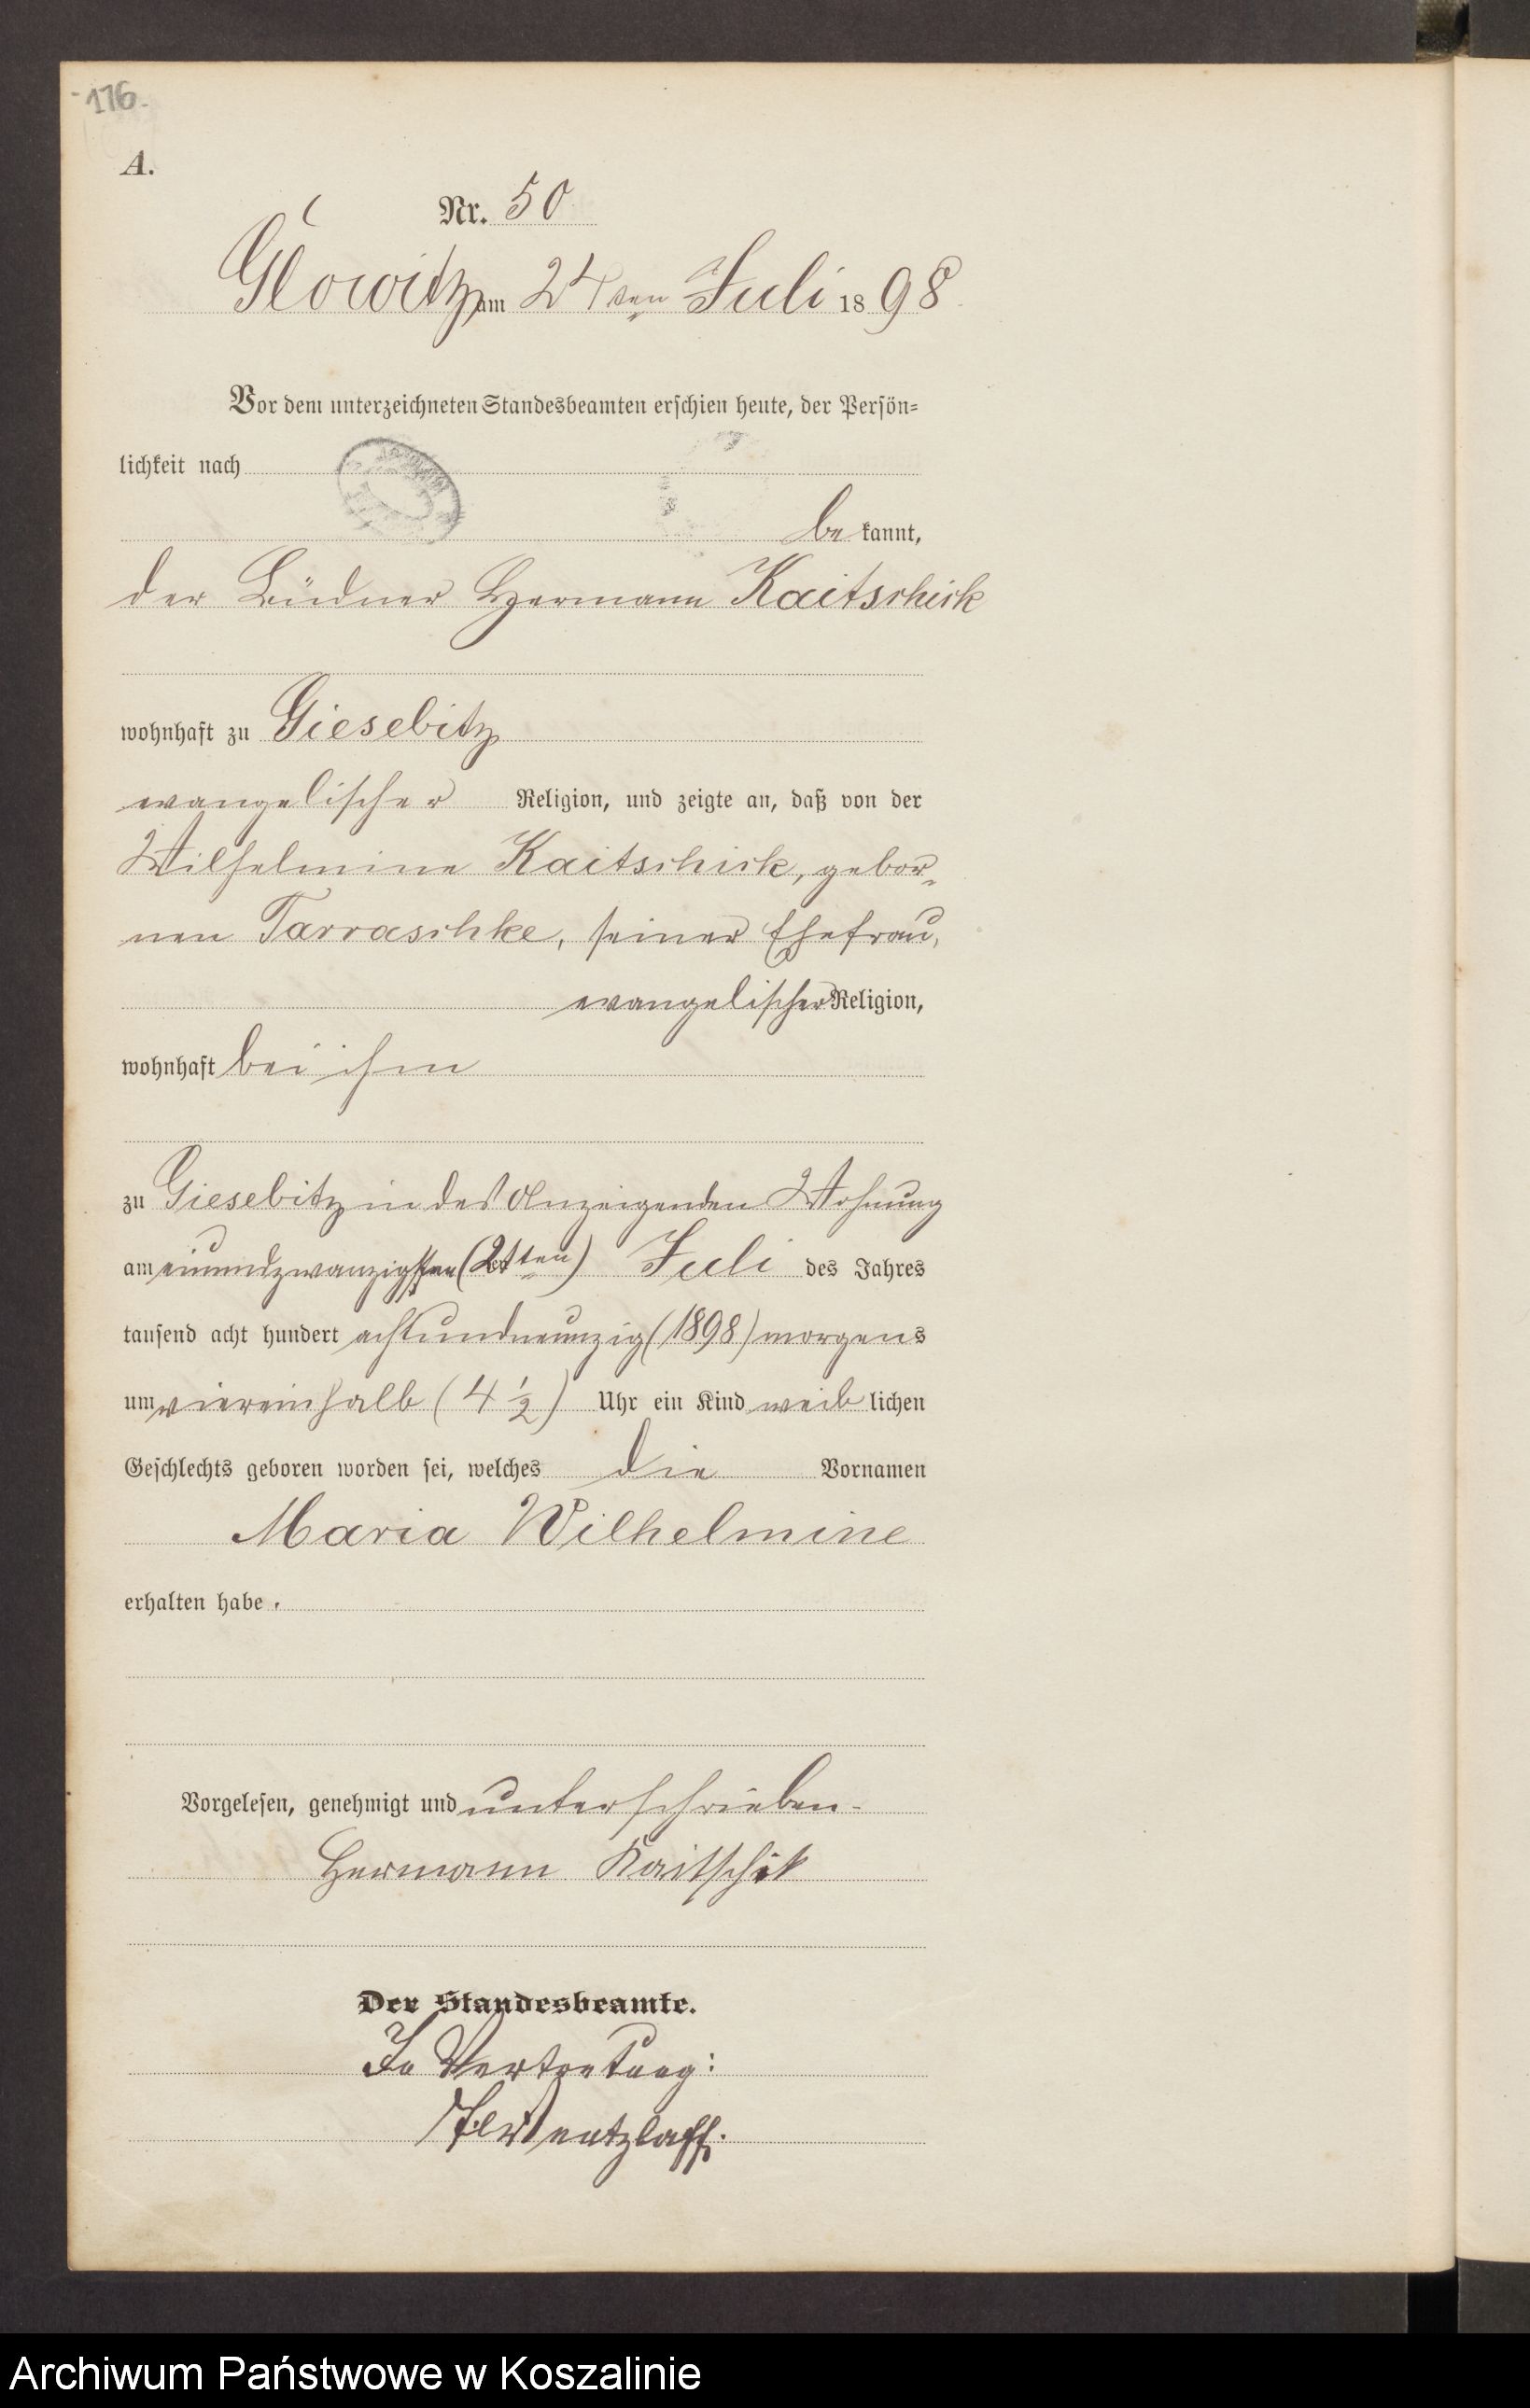 -176-
A.
Nr. 50
Glowitz am 24ten Juli 1898
Vor dem unterzeichneten Standesbeamten erschien heute, der Persön=
lichkeit nach
be kannt,
der Büdner Hermann Kaitschick
wohnhaft zu Giesebitz
evangelischer Religion, und zeigte an, daß von der
Wilhelmine Kaitschick, gebor-
nen Tarraschke, seiner Ehefrau,
evangelischer Religion,
wohnhaft bei ihm
zu Giesebitz in des Anzeigenden Wohnung
am einundzwanzigsten (21ten) Juli des Jahres
tausend acht hundert achtundneunzig (1898) morgens
um viereinhalb (4 ½) Uhr ein Kind weib lichen
Geschlechts geboren worden sei, welches die Vornamen
Maria Wilhelmine
erhalten habe.
Vorgelesen, genehmigt und unterschrieben.
Hermann Kaitschik
Der Standesbeamte.
In Vertretung:
Wentzlaff.
Archiwum Państwowe w Koszalinie